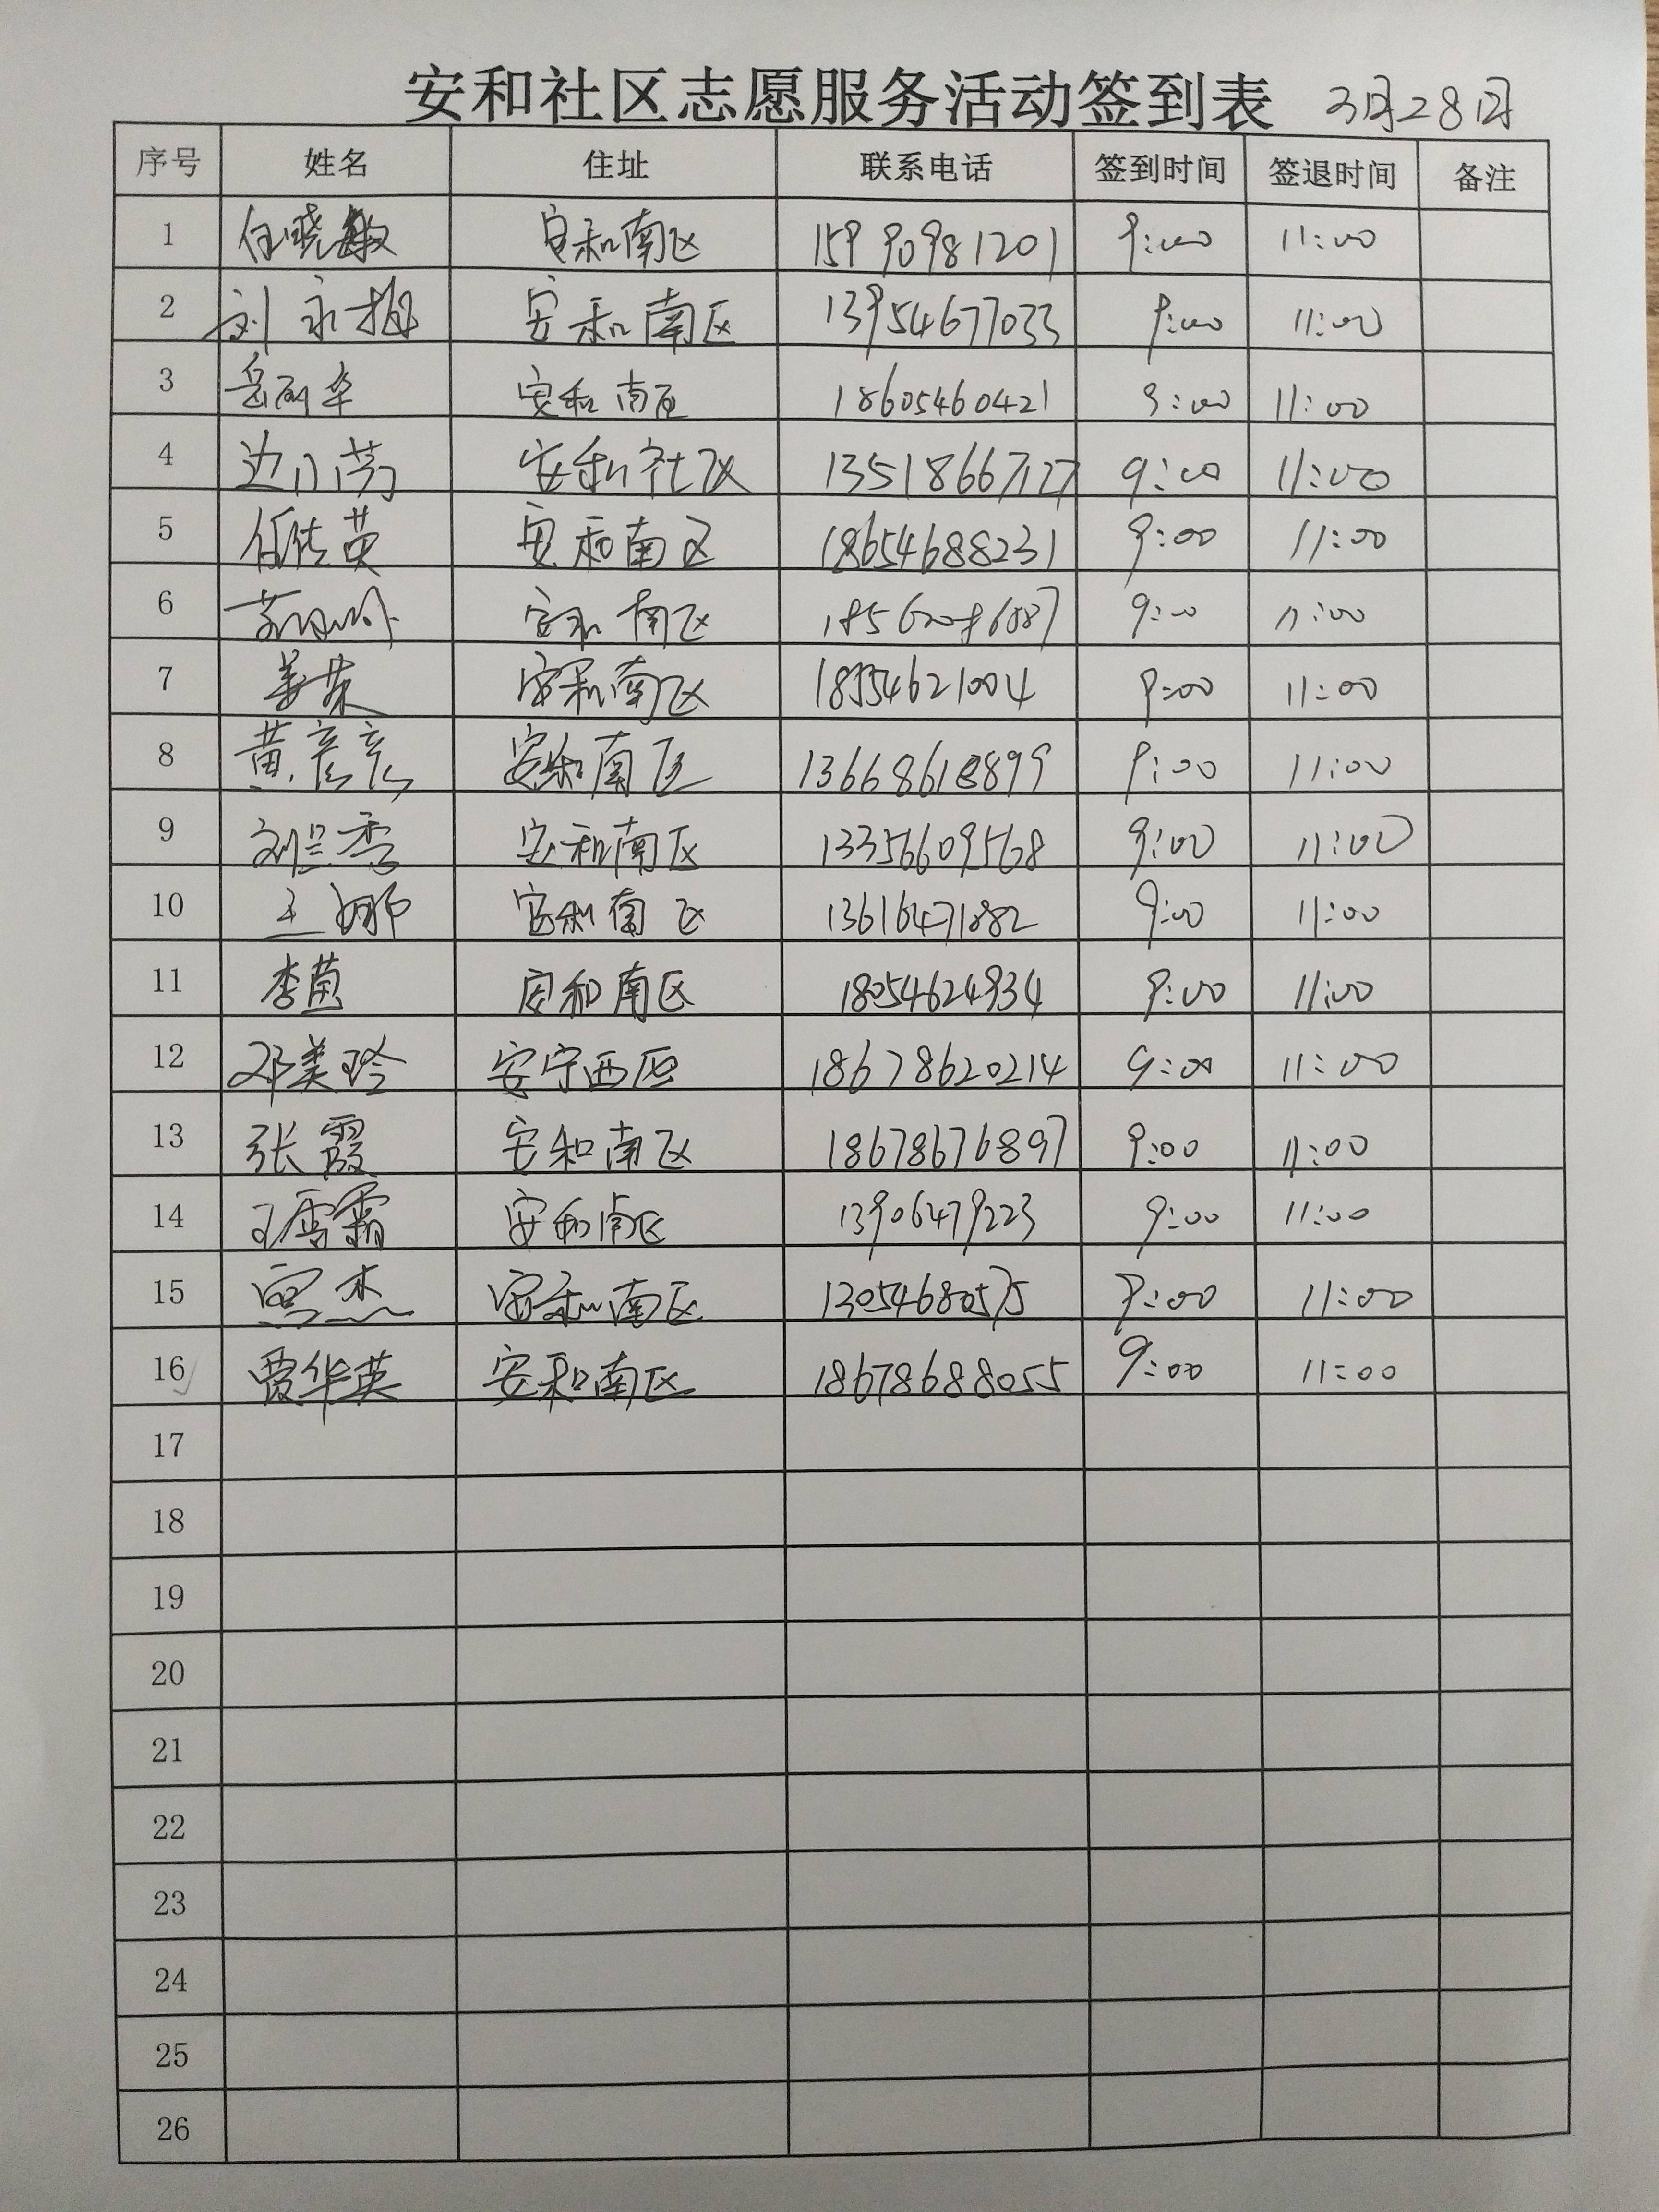 安和社区志愿服务活动签到表 3月28日
序号 姓名 住址 联系电话 签到时间 签退时间 备注
1 任晓敏 安和南区 15990981201 9:00 11:00
2 刘永梅 安和南区 13954677033 9:00 11:00
3 岳丽华 安和南区 18605460421 9:00 11:00
4 边小芳 安和社区 13518667127 9:00 11:00
5 任传英 安和南区 18654688231 9:00 11:00
6 安和南区 9:00 11:00
7 姜荣 安和南区 18554621004 9:00 11:00
8 黄彦彦 安和南区 13668618899 9:00 11:00
9 刘兰香 安和南区 13356609568 9:00 11:00
10 王娜 安和南区 13616471882 9:00 11:00
11 李茵 安和南区 18054624934 9:00 11:00
12 邓美玲 安宁西区 18678620214 9:00 11:00
13 张霞 安和南区 18678676897 9:00 11:00
14 王雪霜 安和南区 13906479223 9:00 11:00
15 宫杰 安和南区 13054680575 9:00 11:00
16 贾华英 安和南区 18678688055 9:00 11:00
17
18
19
20
21
22
23
24
25
26